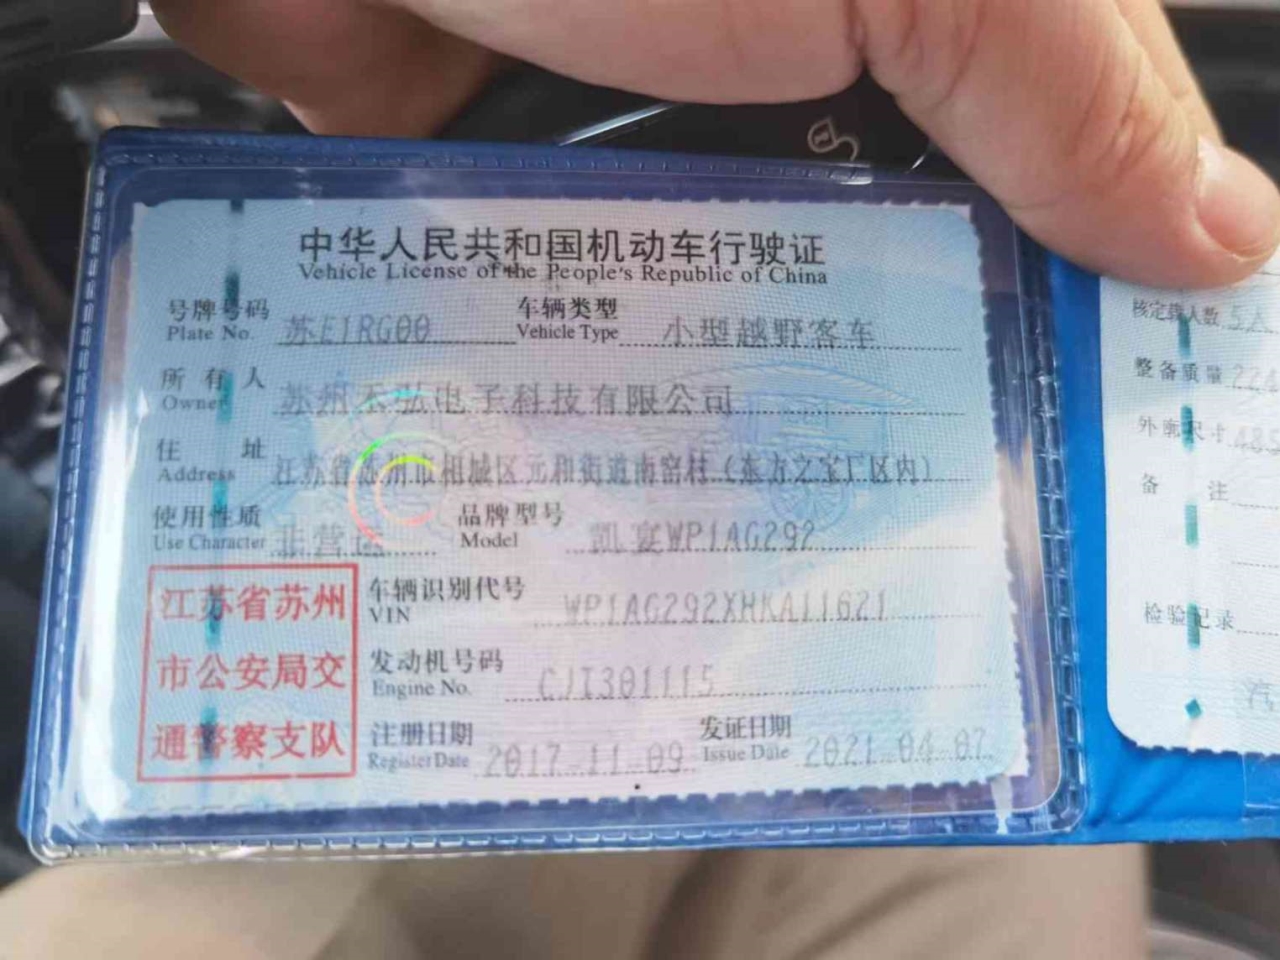 中华人民共和国机动车行驶证
Vehicle License of the People's Republic of China
号牌号码 苏E1RG00 车辆类型 小型越野客车
Plate No. Vehicle Type
所有人 苏州禾弘电子科技有限公司
Owner
住址 江苏省苏州市相城区元和街道南窑村（东方之宝厂区内）
Address
使用性质 非营运 品牌型号 凯宴WP1AG292
Use Character Model
车辆识别代号 WP1AG292XHKA11621
VIN
发动机号码 CJT301115
Engine No.
注册日期 2017-11-09 发证日期 2021-04-07
Register Date Issue Date
江苏省苏州
市公安局交
通警察支队
核定载人数 5人
整备质量
外廓尺寸
备注
检验记录